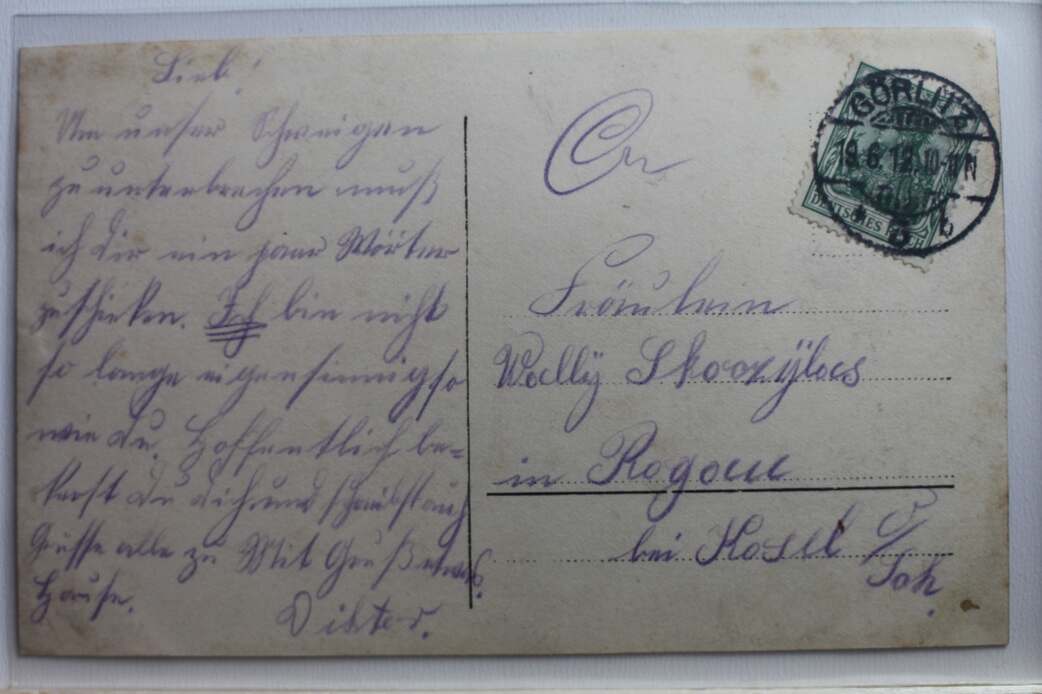 Lieb!
Um unser Schweigen
zu unterbrechen muß
ich dir ein paar Wörter
zuschicken. Ich bin nicht
so lange eigensinnig so
wie du. Hoffentlich be-
du dich und schreibst auch
etwas.
Grüsse alle zu Mit Gruß
Hause.
An
Fräulein
Wally
in Rogau
bei Kosel O/
Sch.
GÖRLITZ
19.6.12.10-11N
DEUTSCHES REICH